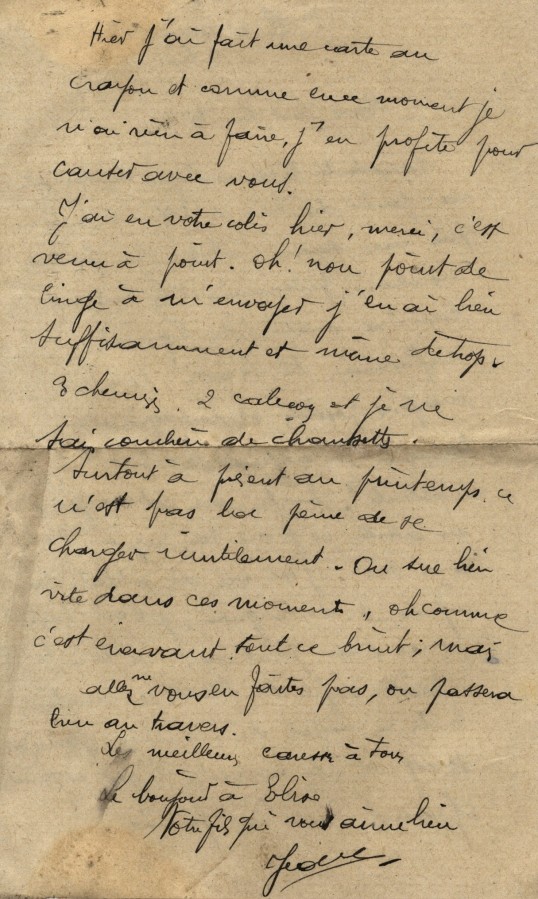 Hier j'ai fait une carte au
crayon et comme en ce moment je
n'ai rien à faire, j'en profite pour
causer avec vous.
J'ai eu votre colis hier, merci, c'est
venu à point. Oh! non point de
linge à m'envoyer j'en ai bien
suffisamment et même de trop.
3 chemises. 2 caleçons et je ne
sai combien de chaussettes.
Surtout à présent au printemps ce
n'est pas la peine de se
charger inutilement. On sue bien
vite dans ces moments, oh comme
c'est énavant tout ce bruit; mais
allez ne vous en faites pas, on passera
bien au travers.
Les meilleurs caresses à tous
Le bonjour à Elise
Votre fils qui vous aime bien